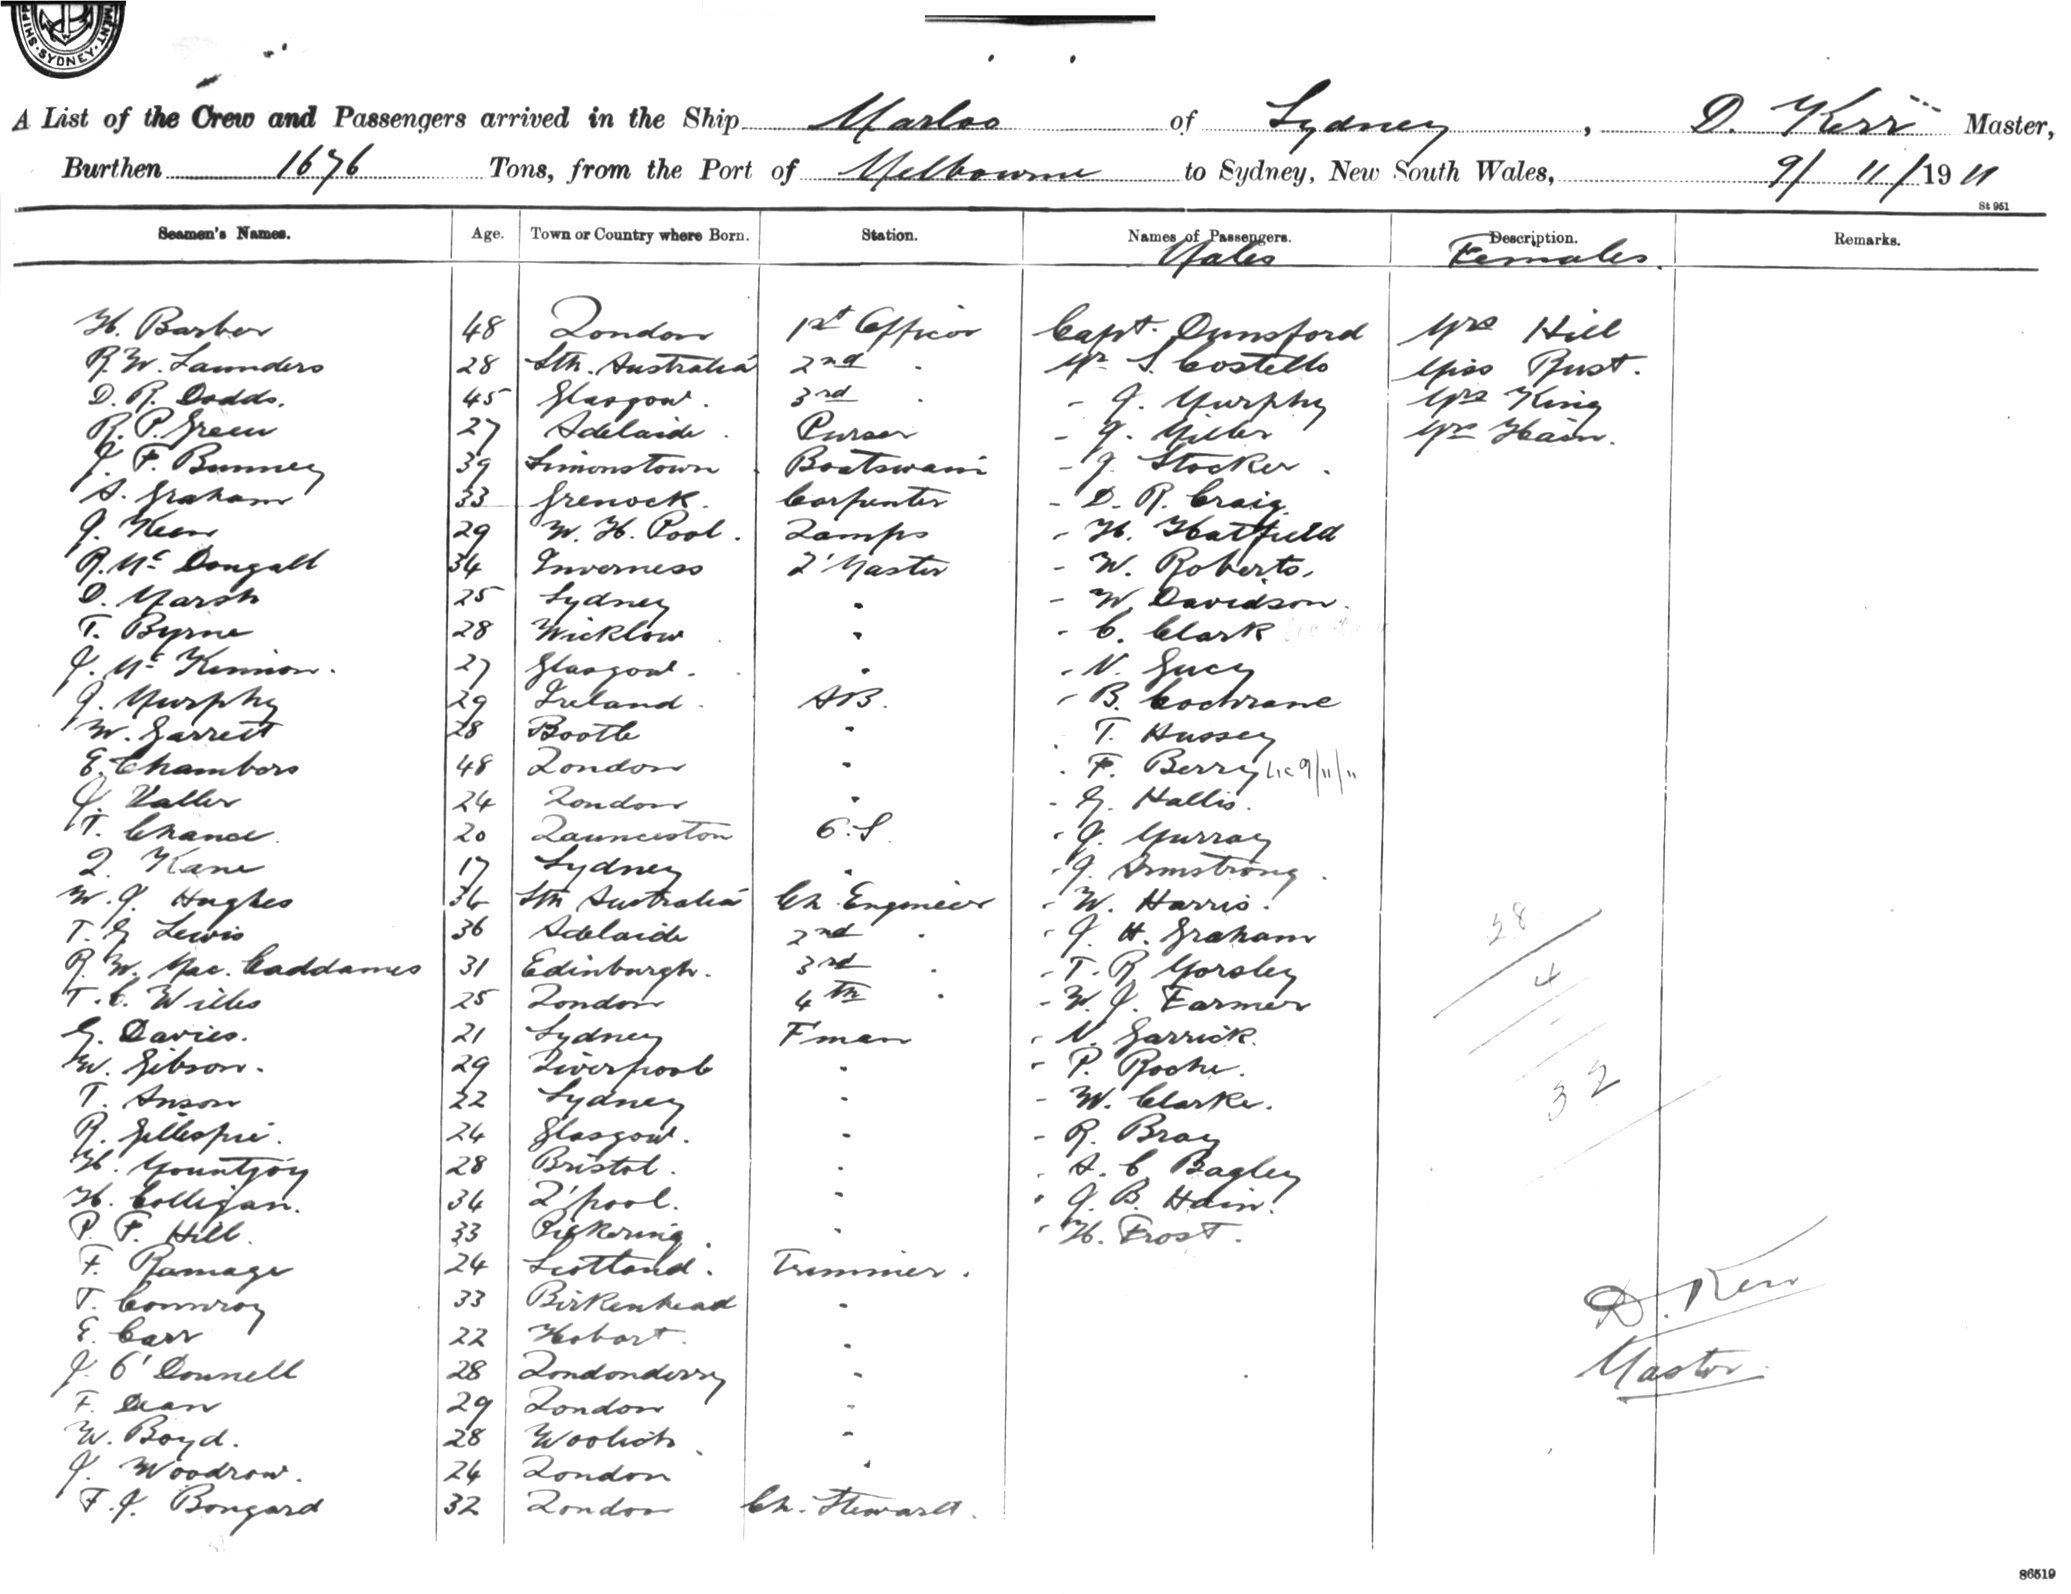 SHIPP MENT. SYDNEY.
A List of the Crew and Passengers arrived in the Ship Marloo of Sydney, D. Kerr Master,
Burthen 1676 Tons, from the Port of Melbourne to Sydney, New South Wales, 9/11/1911
St 951
Seamen's Names. Age. Town or Country where Born. Station. Names of Passengers. Description. Remarks.
Males Females.
H. Barber 48 London 1st Officer Capt. Dunsford Mrs Hill
R. W. Saunders 28 Sth. Australia 2nd " Mr S. Costello Miss Rust.
D. R. Dodds. 45 Glasgow. 3rd " - J. Murphy Mrs King
R. P. Green 27 Adelaide. Purser - J. Miller Mrs Hain.
J. F. Bunney 39 Simonstown Boatswain - J. Stocker.
A. Graham 33 Grenock. Carpenter - D. R. Craig.
J. Keen 29 W. H. Pool. Lamps - H. Hatfield
R. Mc Dougall 34 Inverness 2' Master - W. Roberts.
D. Marsh 25 Sydney " - W. Davidson.
T. Byrne 28 Wicklow " - C. Clark
J. Mc Kinnon. 27 Glasgow. " - N. Gucy
J. Murphy 29 Ireland. AB. - B. Cochrane
W. Garrett 28 Bootle " T. Hussey
E. Chambers 48 London " - F. Berry Lic 9/11/11
J. Valler 24 London " - G. Hallis.
T. Chance. 20 Launceston O.S. - J. Murray
L. Kane 17 Sydney " - J. Armstrong.
W. J. Hughes 36 Sth Australia Ch. Engineer - W. Harris.
T. G Lewis 36 Adelaide 2nd " - J. H. Graham
R. W. Mac. Caddames 31 Edinburgh. 3rd " - T. R. Morsley
T. C. Willis 25 London 4th " - W. J. Farmer
G. Davies. 21 Sydney F'man - N. Garrick.
W. Gibson. 29 Liverpool " - P. Roche.
T. Anson 22 Sydney " - W. Clarke.
R. Gillespie. 24 Glasgow. " - R. Bray
H. Mountjoy 28 Bristol. " - A. C. Bagley
H. Colligan. 34 L'pool. " - J. B. Hain.
P. F. Hill. 33 Pickering. " - H. Frost.
F. Ramage 24 Scotland. Trimmer.
T. Connroy 33 Birkenhead "
E. Carr 22 Hobart. "
J. O'Donnell 28 Londonderry "
F. Dean 29 London "
W. Boyd. 28 Woolich. "
J. Woodrow. 24 London "
F. J. Bongard 32 London Ch. Stewardt.
28
4
32
D. Kerr
Master.
86519